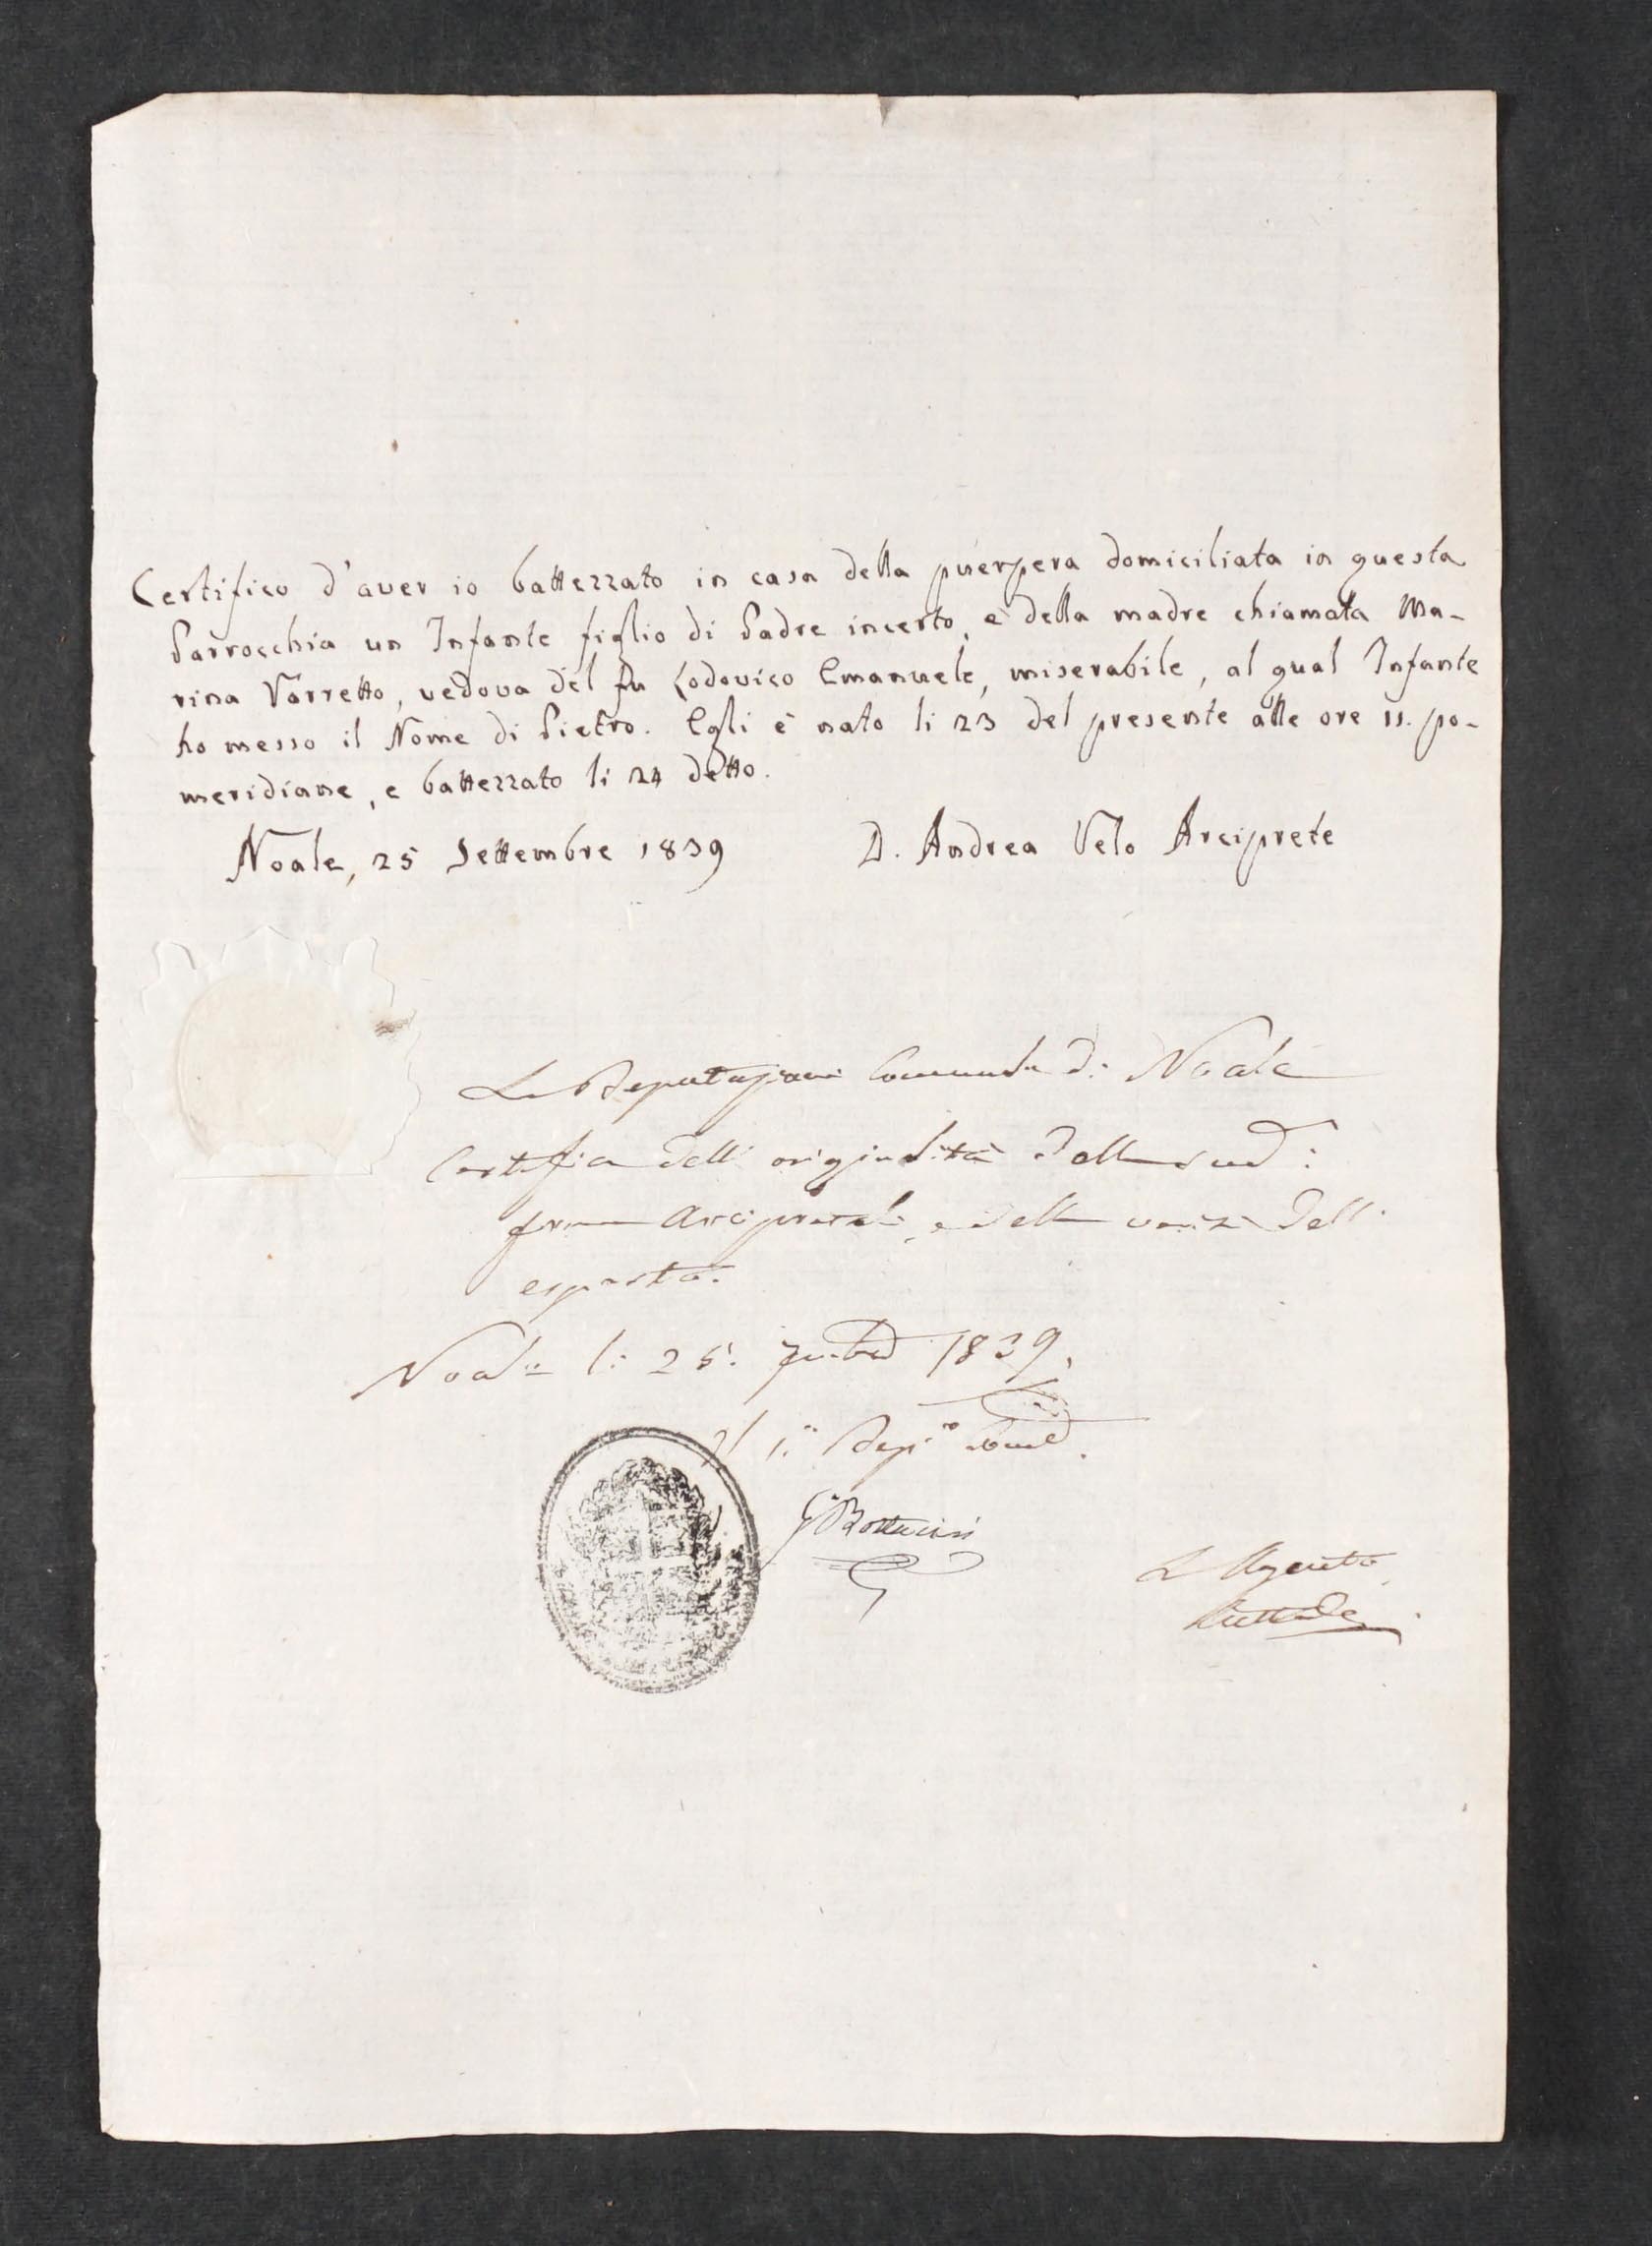 Certifico d'aver io battezzato in casa della puerpera domiciliata in questa
Parrocchia un Infante figlio di Padre incerto, e della madre chiamata Ma-
rina Vorretto, vedova del fu Lodovico Emanuele, miserabile, al qual Infante
ho messo il Nome di Pietro. Egli è nato li 23 del presente alle ore 11. po-
meridiane, e battezzato li 24 detto.
Noale, 25 Settembre 1839 D. Andrea Velo Arciprete
La Deputazione Comunale di Noale
Certifica dell' originalità della sud:
firma Arcipretale, e della verità dell'
esposto.
Noale li 25. 7mbre 1839.
Il 1.° Dep.°
L'Agente